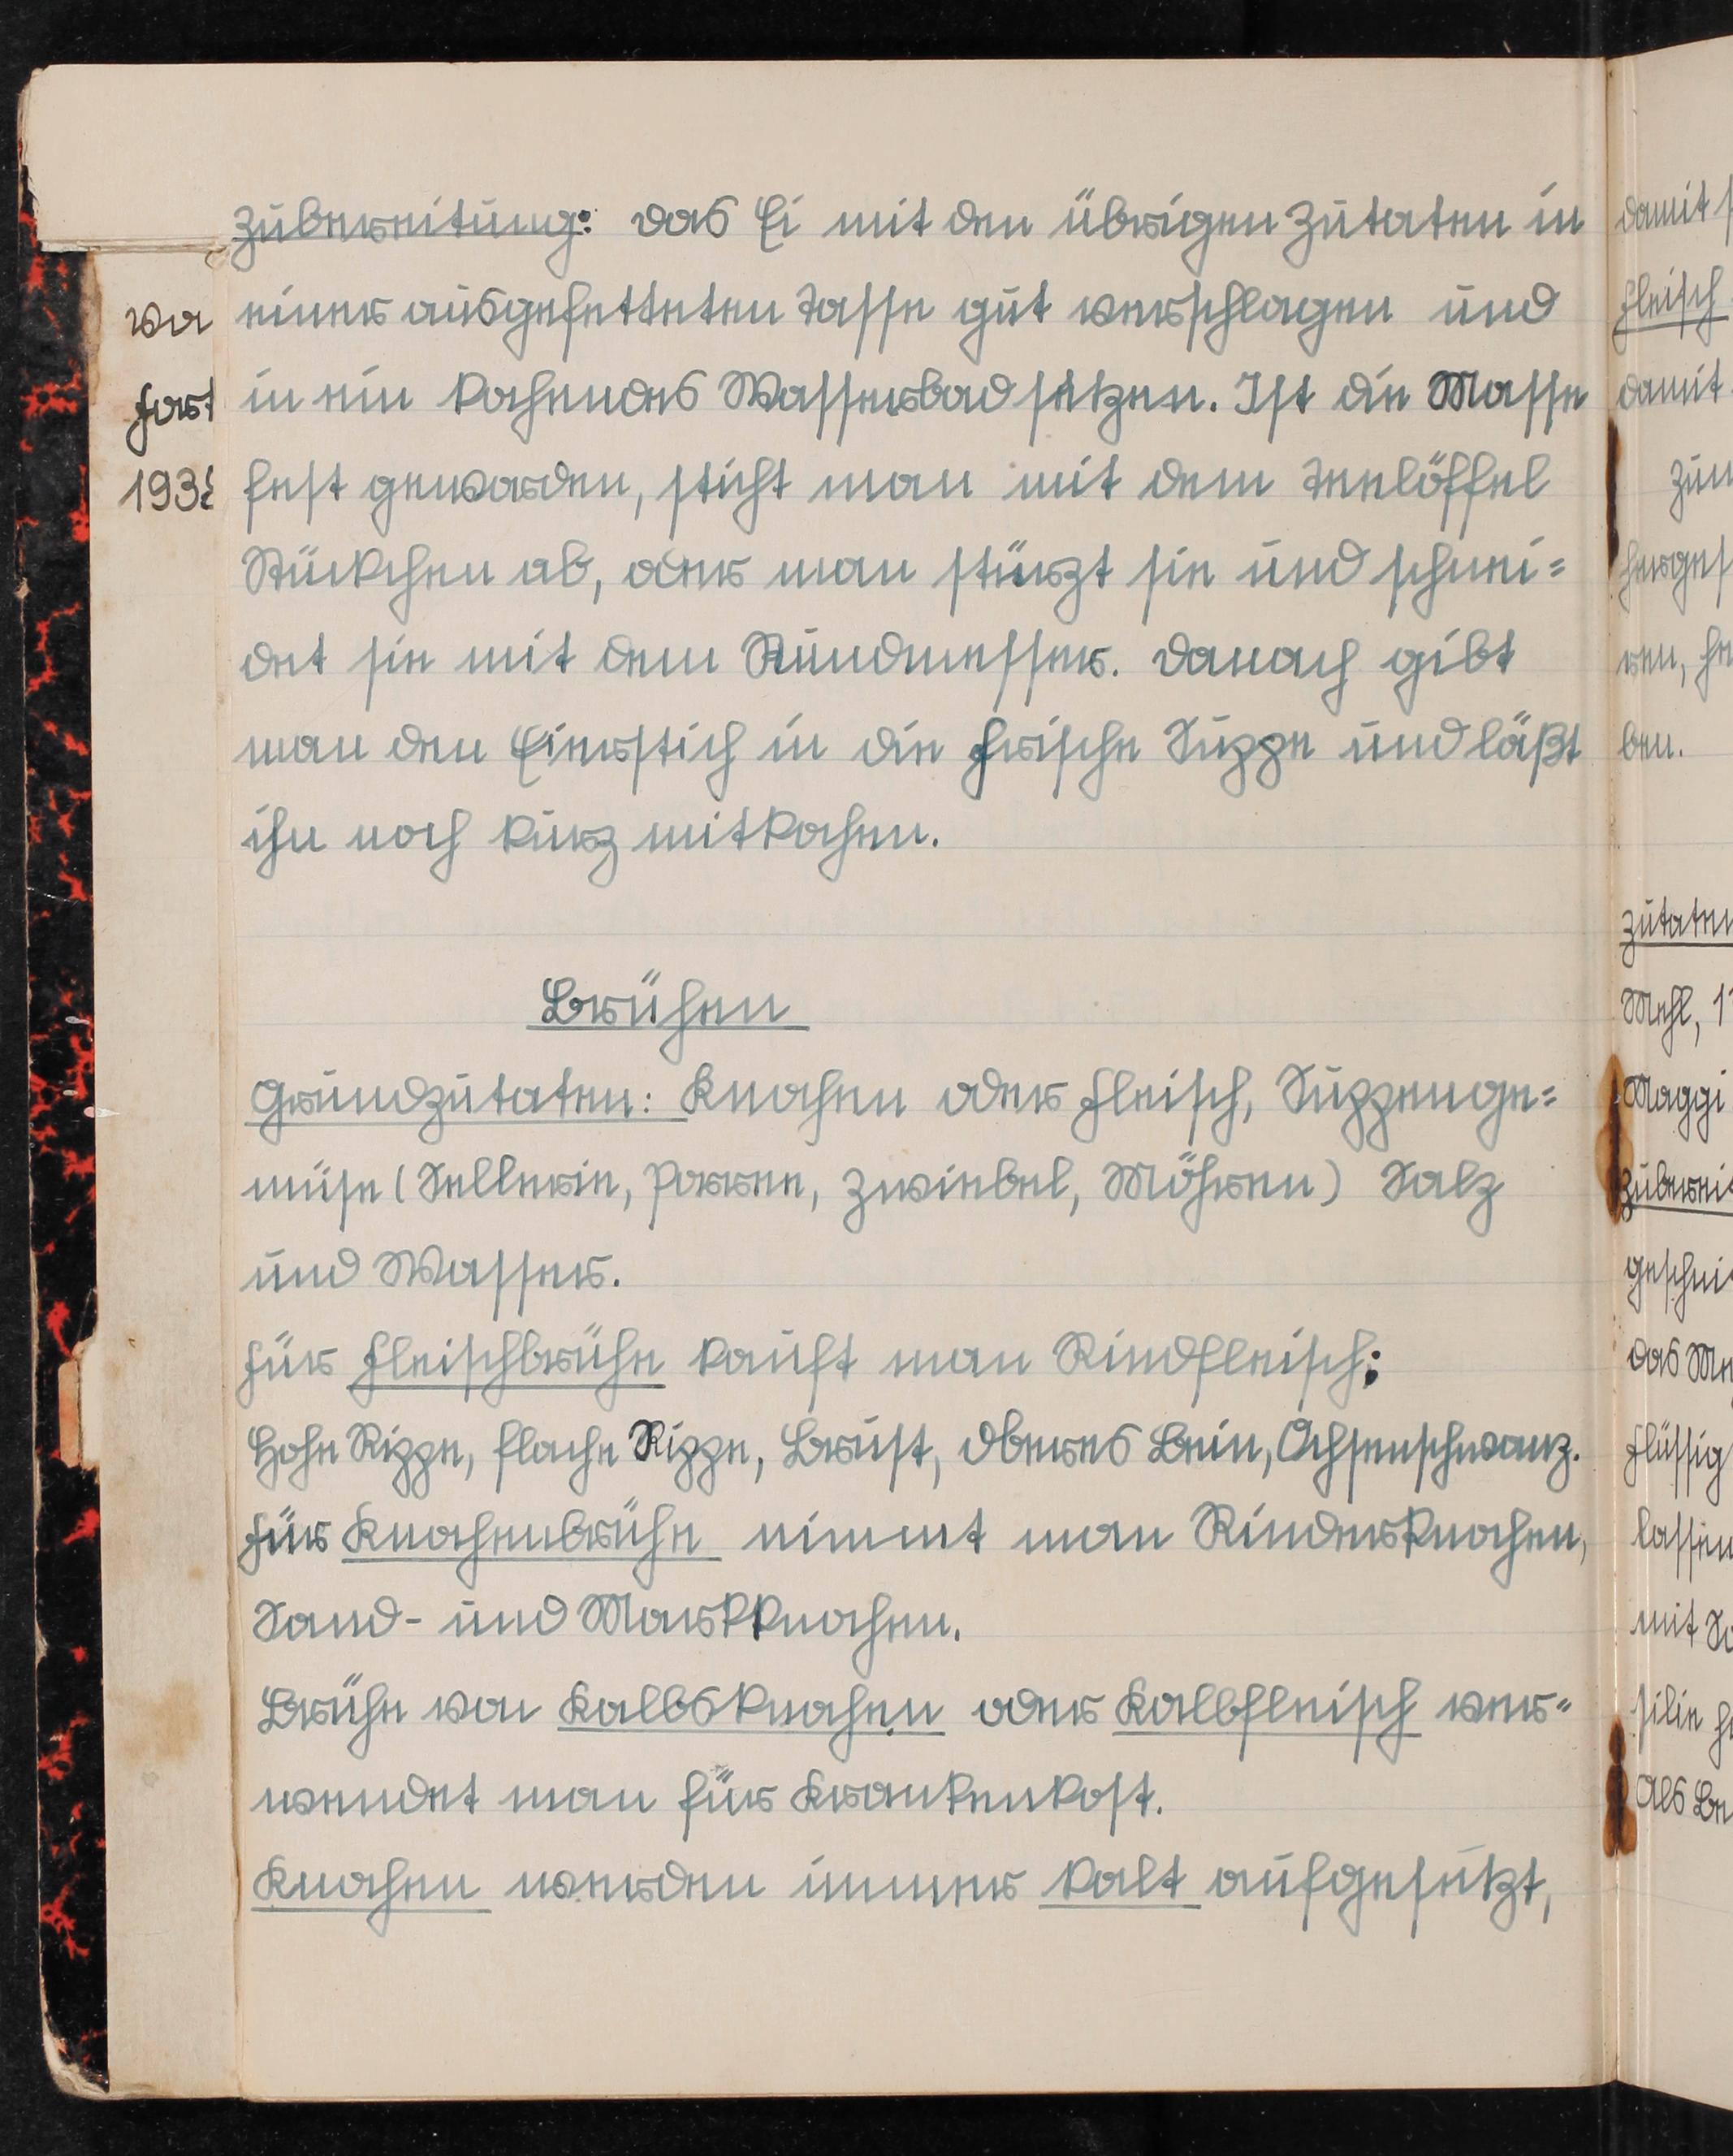 Zubereitung: Das Ei mit den übrigen Zutaten in
einer ausgefetteten Tasse gut verschlagen und
in ein kochendes Wasserbad setzen. Ist die Masse
fest geworden, sticht man mit dem Teelöffel
Stückchen ab, oder man stürzt sie und schnei=
det sie mit dem Buntmesser. Danach gibt
man den Eierstich in die frische Suppe und läßt
ihn noch kurz mitkochen.
Brühen
Grundzutaten: Knochen oder Fleisch, Suppenge=
müse (Sellerie, Porree, Zwiebel, Möhren) Salz
und Wasser.
Für Fleischbrühe kauft man Rindfleisch:
Hohe Rippe, flache Rippe, Brust, Oberes Bein, Ochsenschwanz.
Für Knochenbrühe nimmt man Rinderknochen,
Sand- und Markknochen.
Brühe von Kalbsknochen oder Kalbfleisch ver=
wendet man für Krankenkost.
Knochen werden immer kalt aufgesetzt,
damit
Fleisch
damit
zum
ren,
ben.
Zutaten
Mehl,
Maggi
Zuberei
das
flüssig
lassen
mit
silie
Als